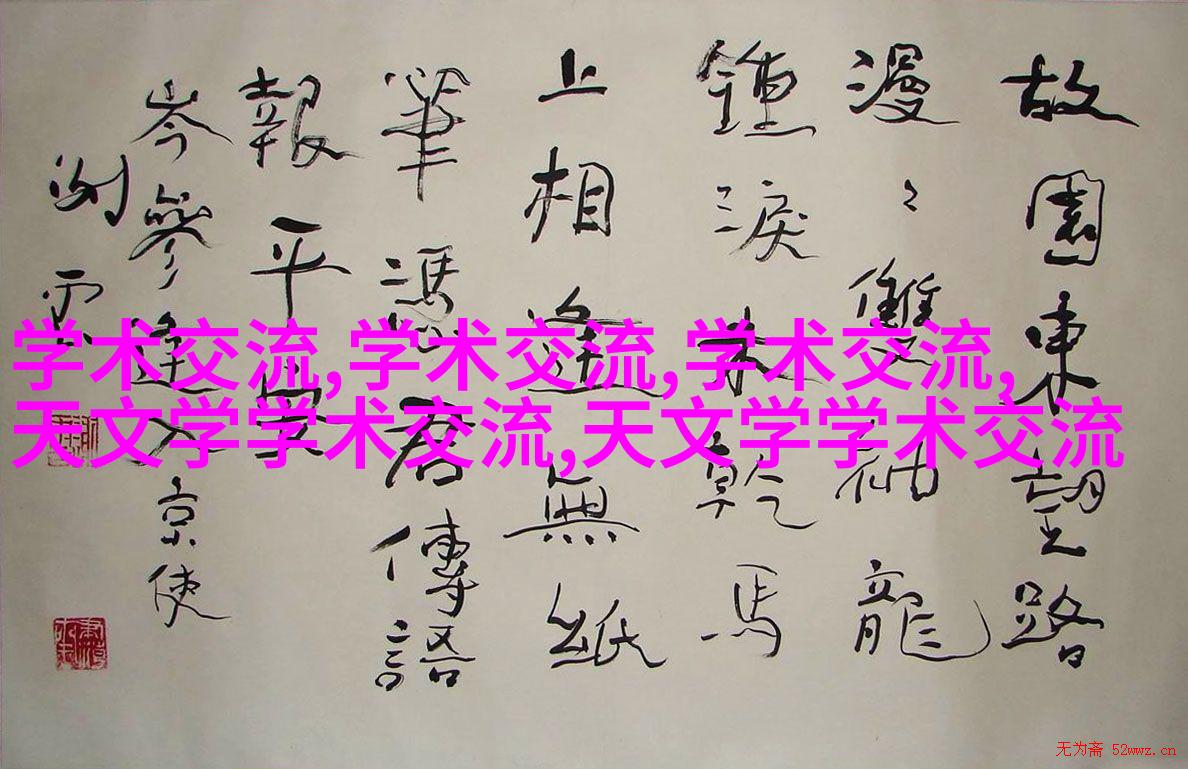 故園東望路
漫〻雙袖龍
鍾淚未乾馬
上相逢無紙
筆憑君傳語
報平安
岑參逢入京使
謝雲
学术交流,学术交流,学术交流,
天文学学术交流,天文学学术交流
无为斋 52wwz.cn